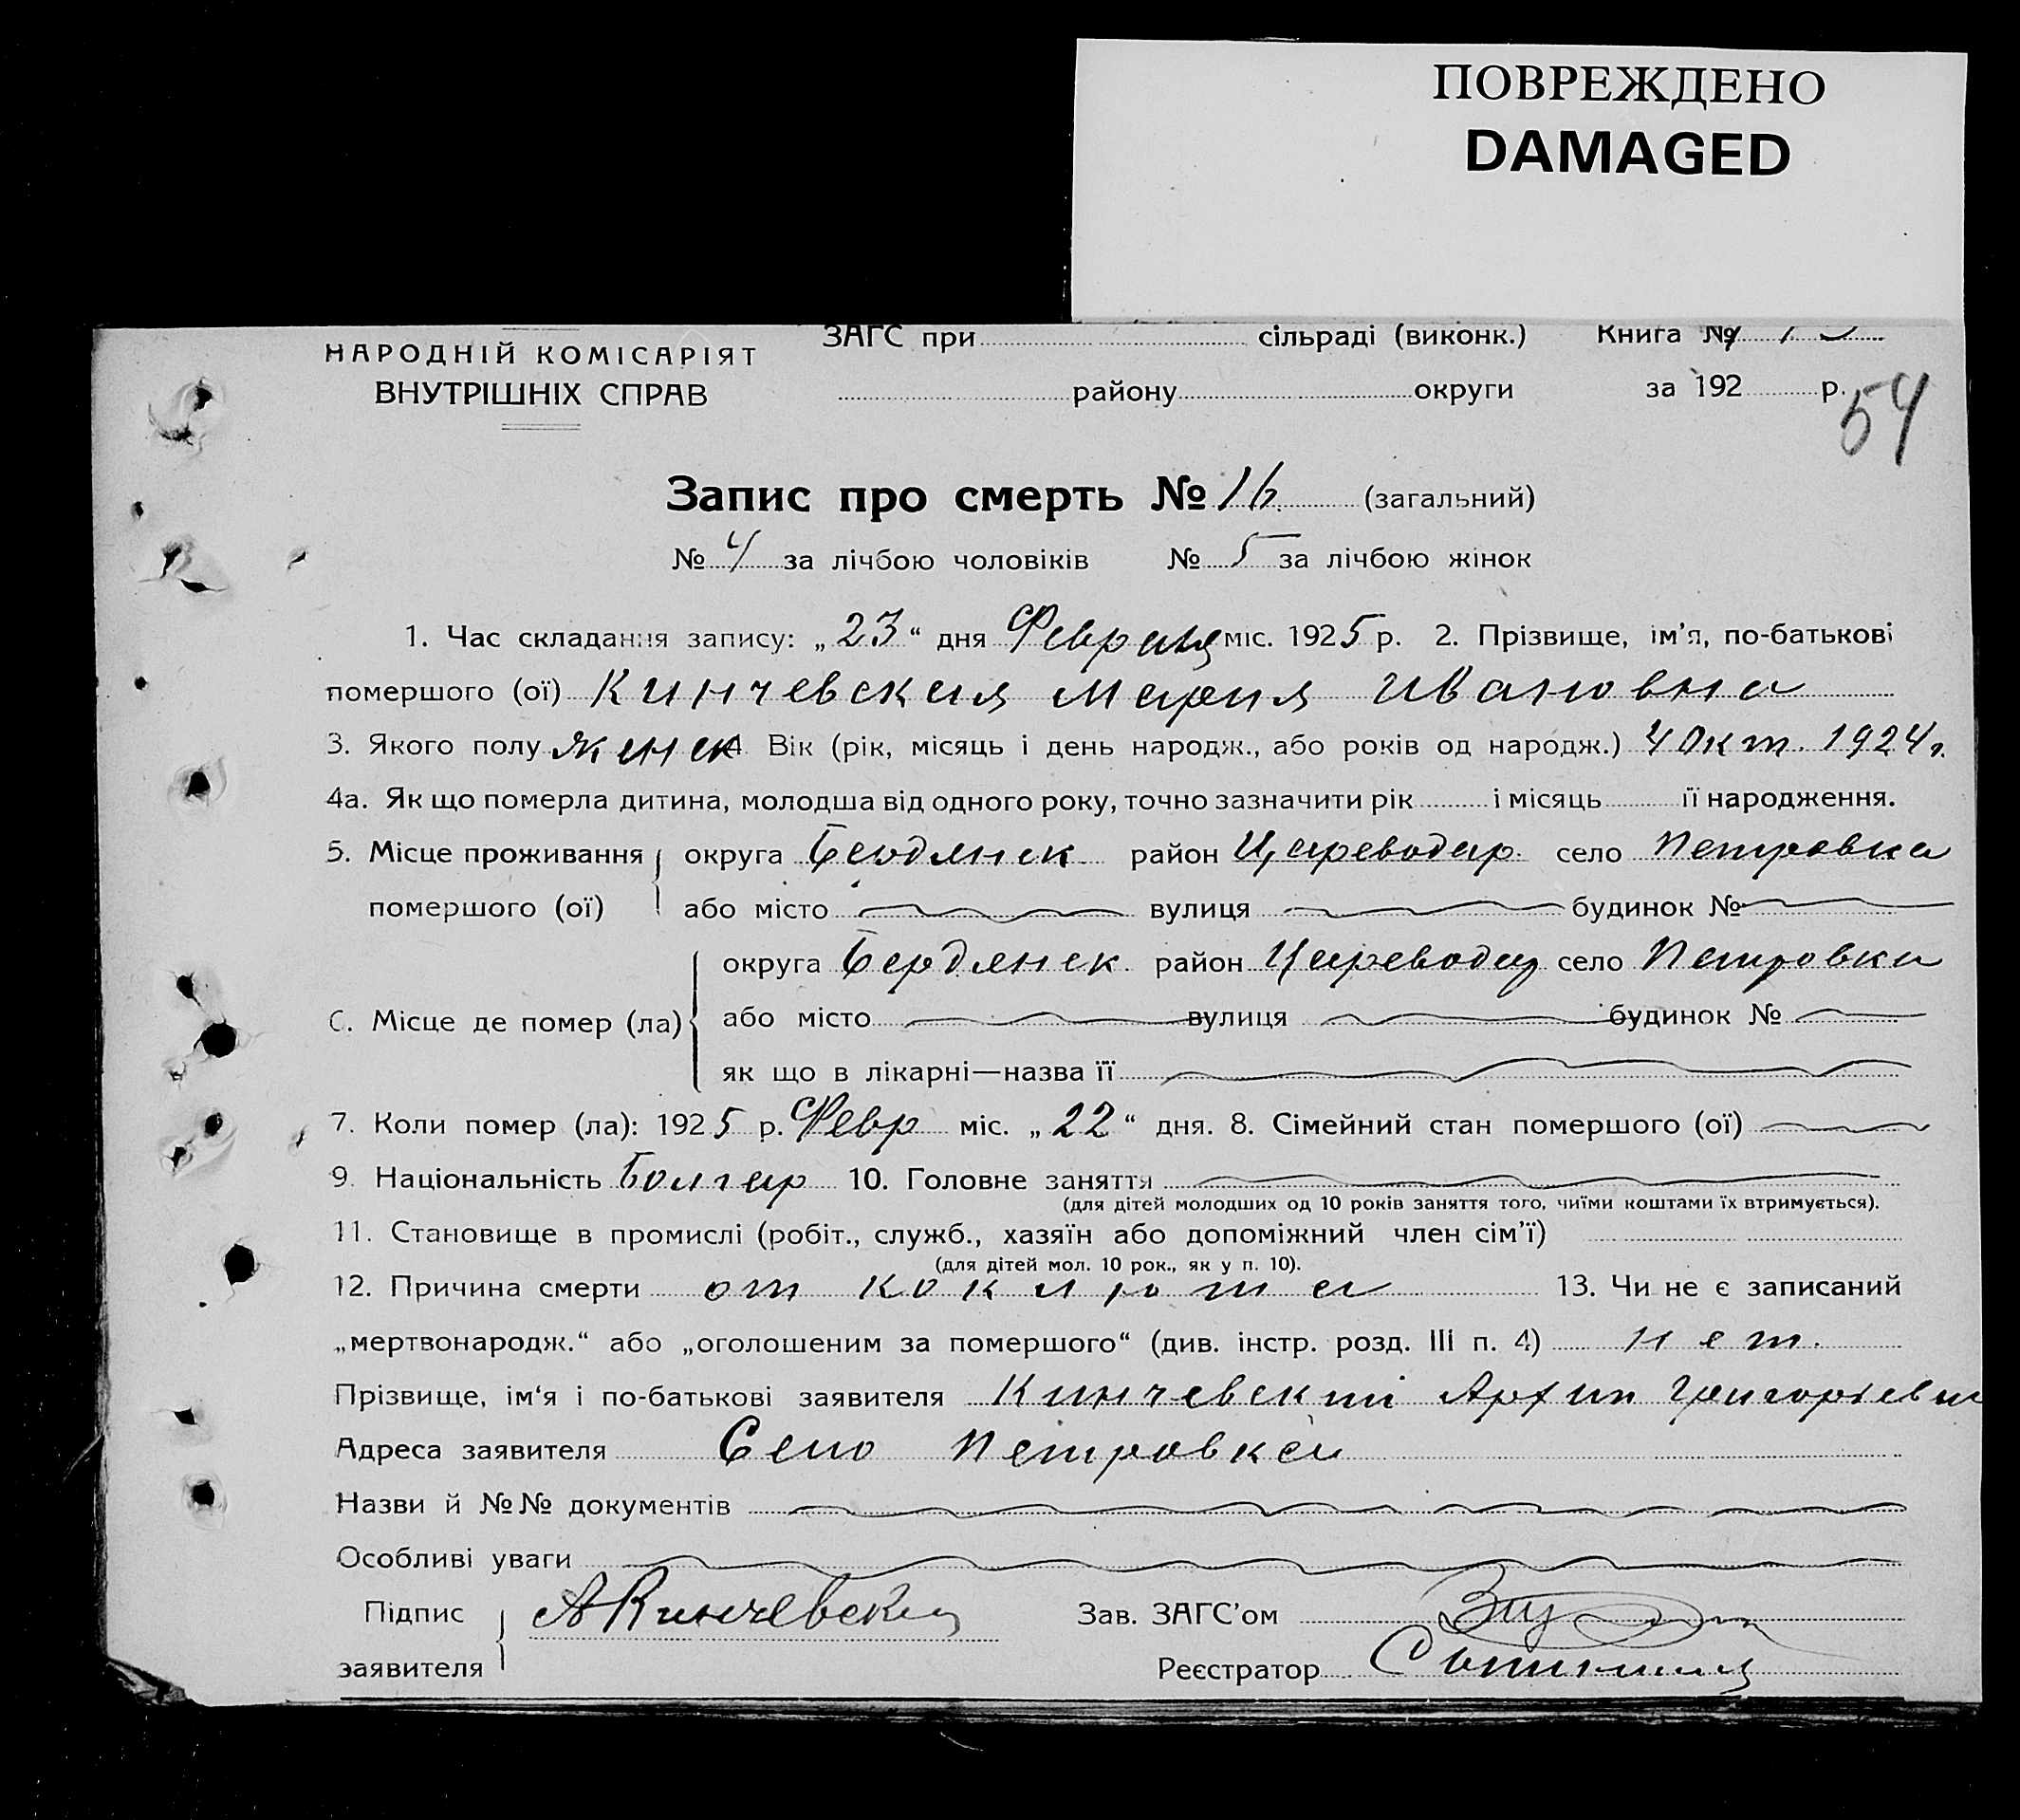 ПОВРЕЖДЕНО
DAMAGED
НАРОДНІЙ КОМІСАРІЯТ
ВНУТРІШНІХ СПРАВ
ЗАГС при сільраді (виконк.) Книга №
району округи за 192 р.
54
Запис про смерть № 16 (загальний)
№ 4 за лічбою чоловіків № 5 за лічбою жінок
1. Час складання запису: „23“ дня Февраля міс. 1925 р. 2. Прізвище, ім'я, по-батькові
помершого (ої) Кинчевская Мария Ивановна
3. Якого полу женск Вік (рік, місяць і день народж., або років од народж.) 4 Окт. 1924 г.
4а. Як що померла дитина, молодша від одного року, точно зазначити рік і місяць її народження.
5. Місце проживання округа Бердянск район Цареводар. село Петровка
помершого (ої) або місто вулиця будинок №
округа Бердянск район Цареводар село Петровка
6. Місце де помер (ла) або місто вулиця будинок №
як що в лікарні—назва її
7. Коли помер (ла): 1925 р. Февр міс. „22“ дня. 8. Сімейний стан помершого (ої)
9. Національність Болгар 10. Головне заняття
(для дітей молодших од 10 років заняття того, чиїми коштами їх втримується).
11. Становище в промислі (робіт., служб., хазяїн або допоміжний член сім'ї)
(для дітей мол. 10 рок., як у п. 10).
12. Причина смерти от коклюша 13. Чи не є записаний
„мертвонародж.“ або „оголошеним за помершого“ (див. інстр. розд. III п. 4) нет.
Прізвище, ім'я і по-батькові заявителя Кинчевский Архип Григорьевич
Адреса заявителя Село Петровка
Назви й №№ документів
Особливі уваги
Підпис заявителя АКинчевский Зав. ЗАГС'ом
Реєстратор